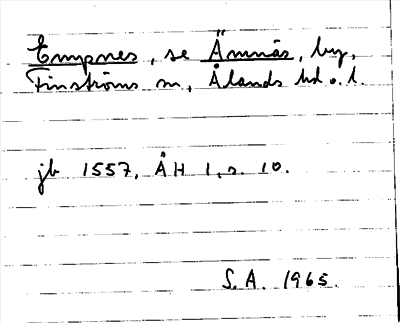 Empnes, se Ämnäs, by,
Finströms sn, Ålands hd o. l.
jb 1557, ÅH 1, s. 10.
S.A. 1965.